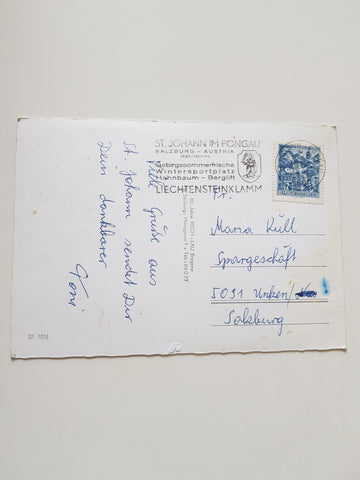 ST. JOHANN IM PONGAU
SALZBURG - AUSTRIA
Gebirgssommerfrische
Wintersportplatz
Hahnbaum - Berglift
LIECHTENSTEINKLAMM
Viele Grüße aus
St. Johann sendet Dir
Dein dankbarer
Toni
Fr.
Maria Rull
Spargeschäft
5091 Unken/
Salzburg
ST 1056